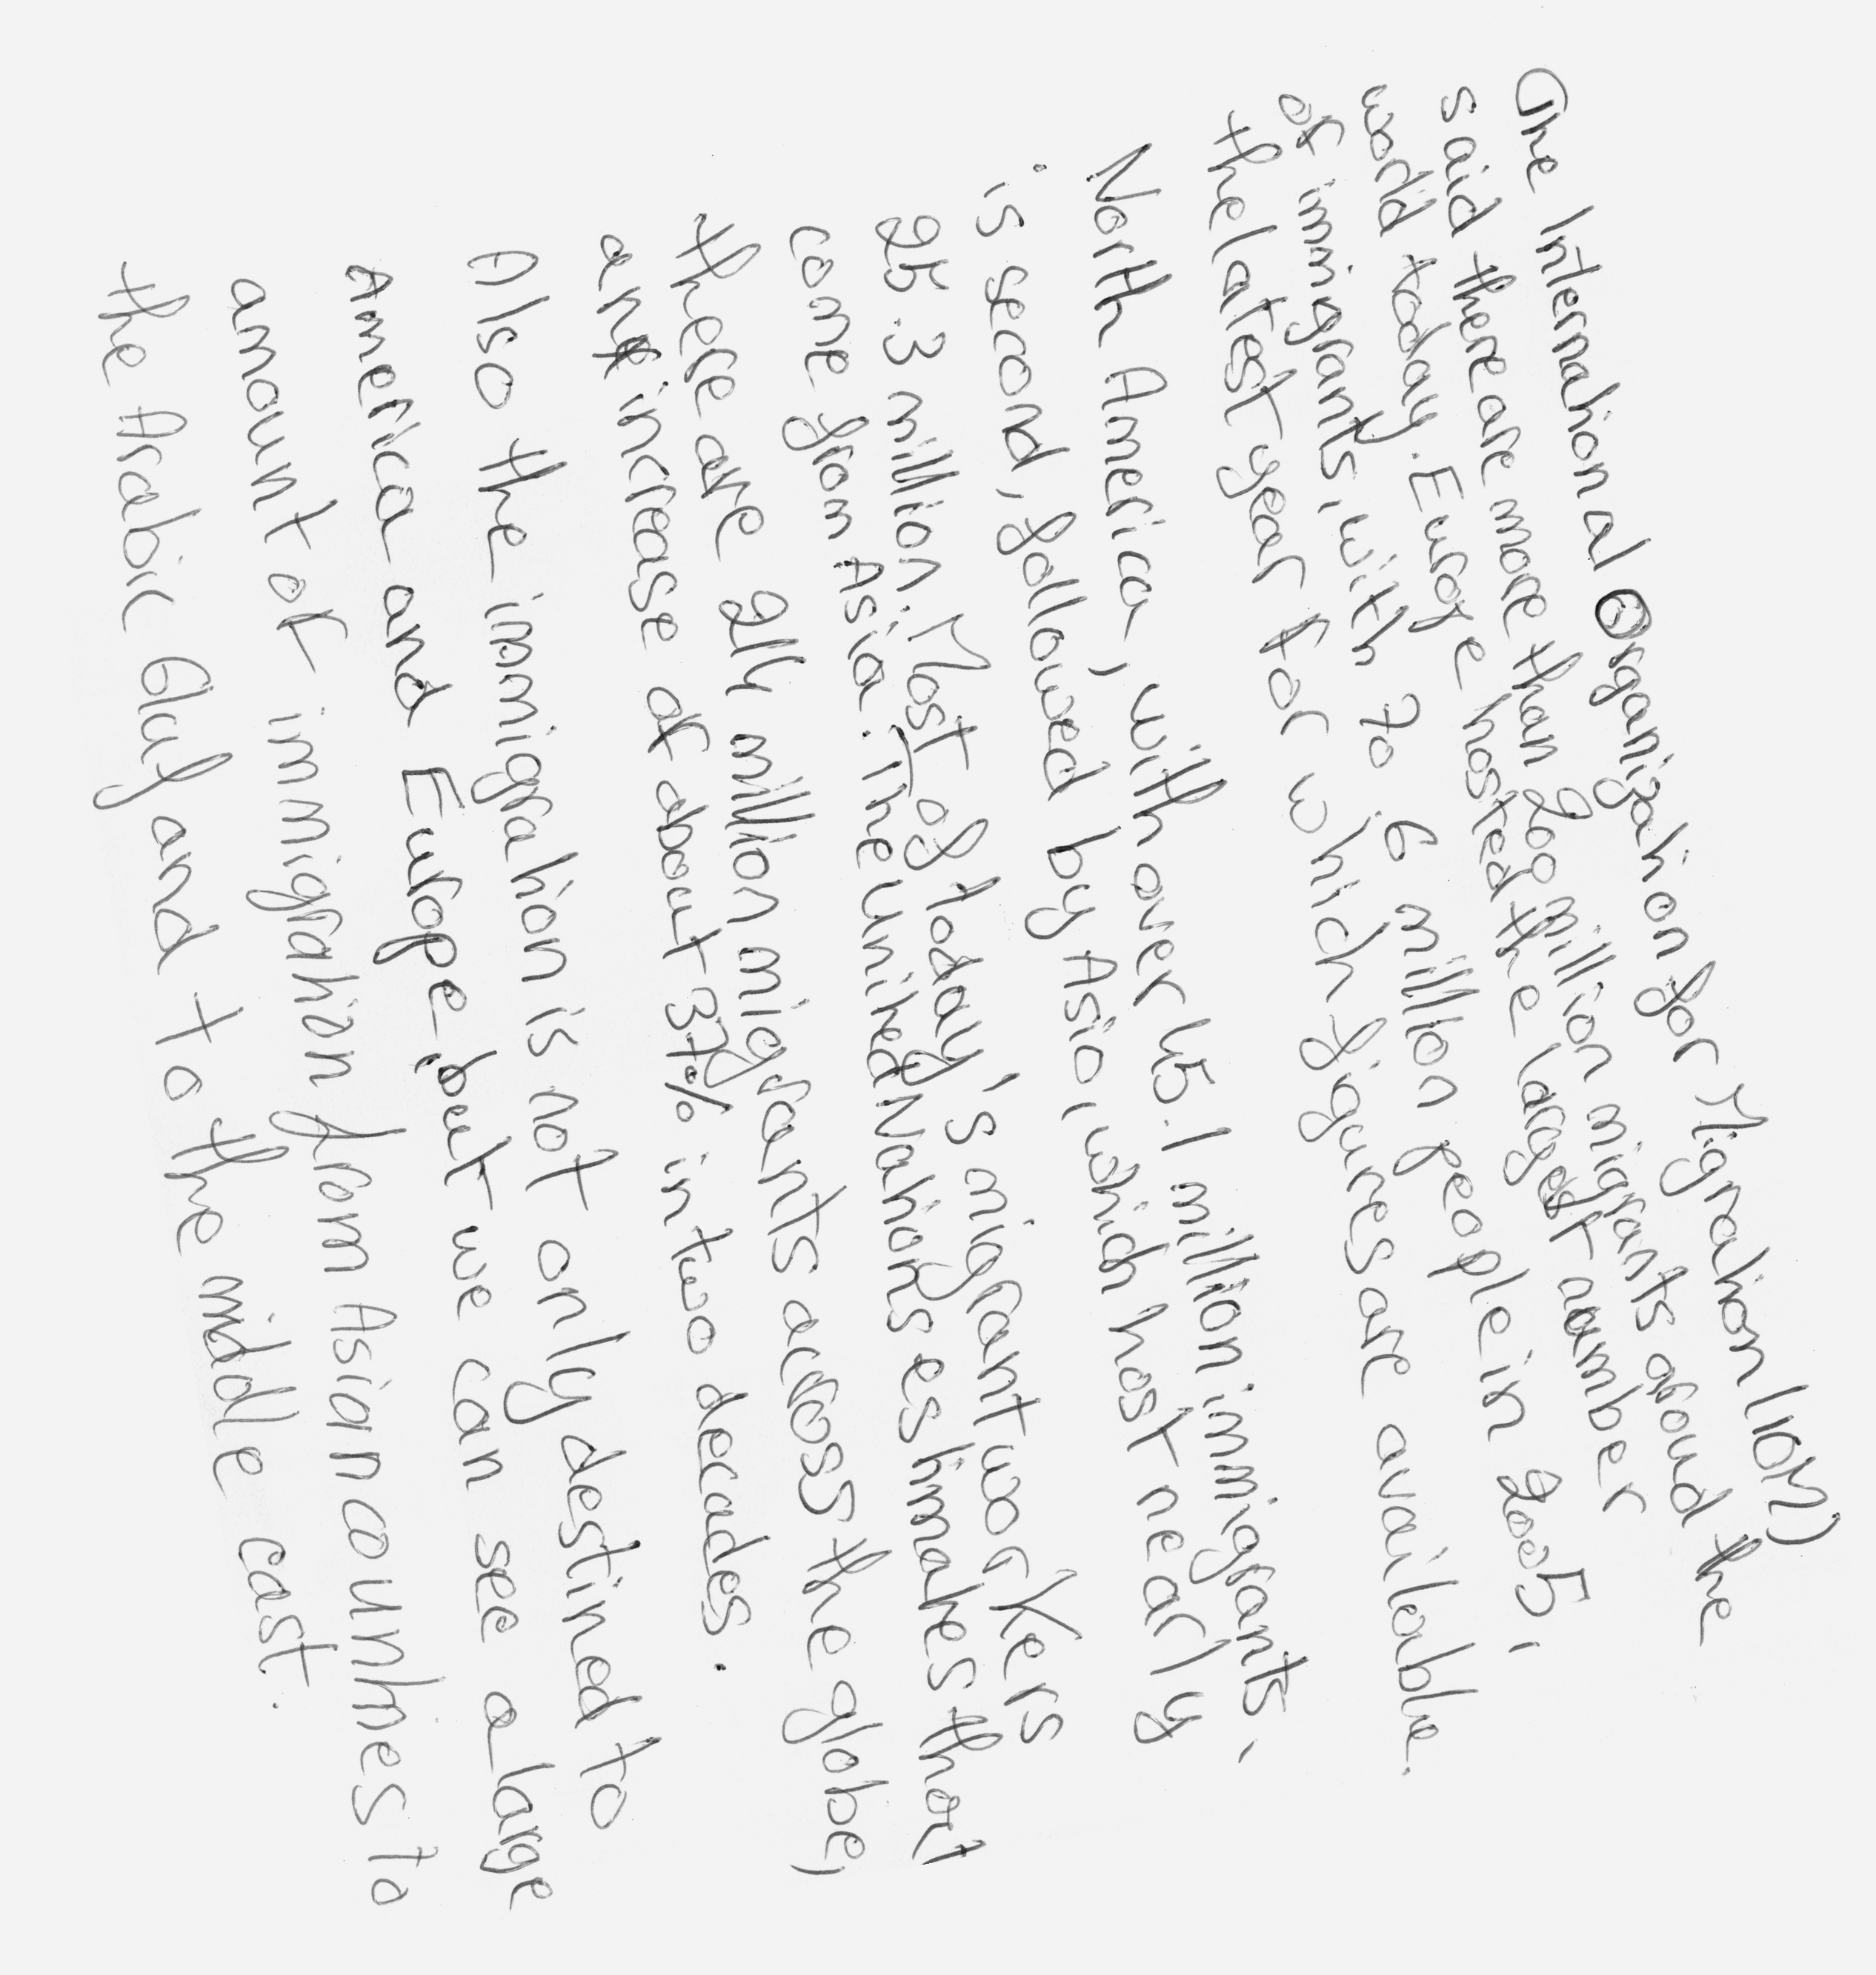 The International Organization for Migration (IOM)
said there are more than 200 million migrants aroud the
world today. Europe hosted the largest number
of immigrants, with 70.6 million people in 2005,
the latest year for which figures are available.
North America, with over 45.1 million immigrants,
is second, followed by Asia, which host nearly
25.3 million. Most of today's migrant workers
come from Asia. The United Nations estimates that
there are 214 million migrants across the globe,
an increase of about 37% in two decades.
Also the immigration is not only destined to
America and Europe but we can see a large
amount of immigration from Asian countries to
the Arabic Gluf and to the middle east.